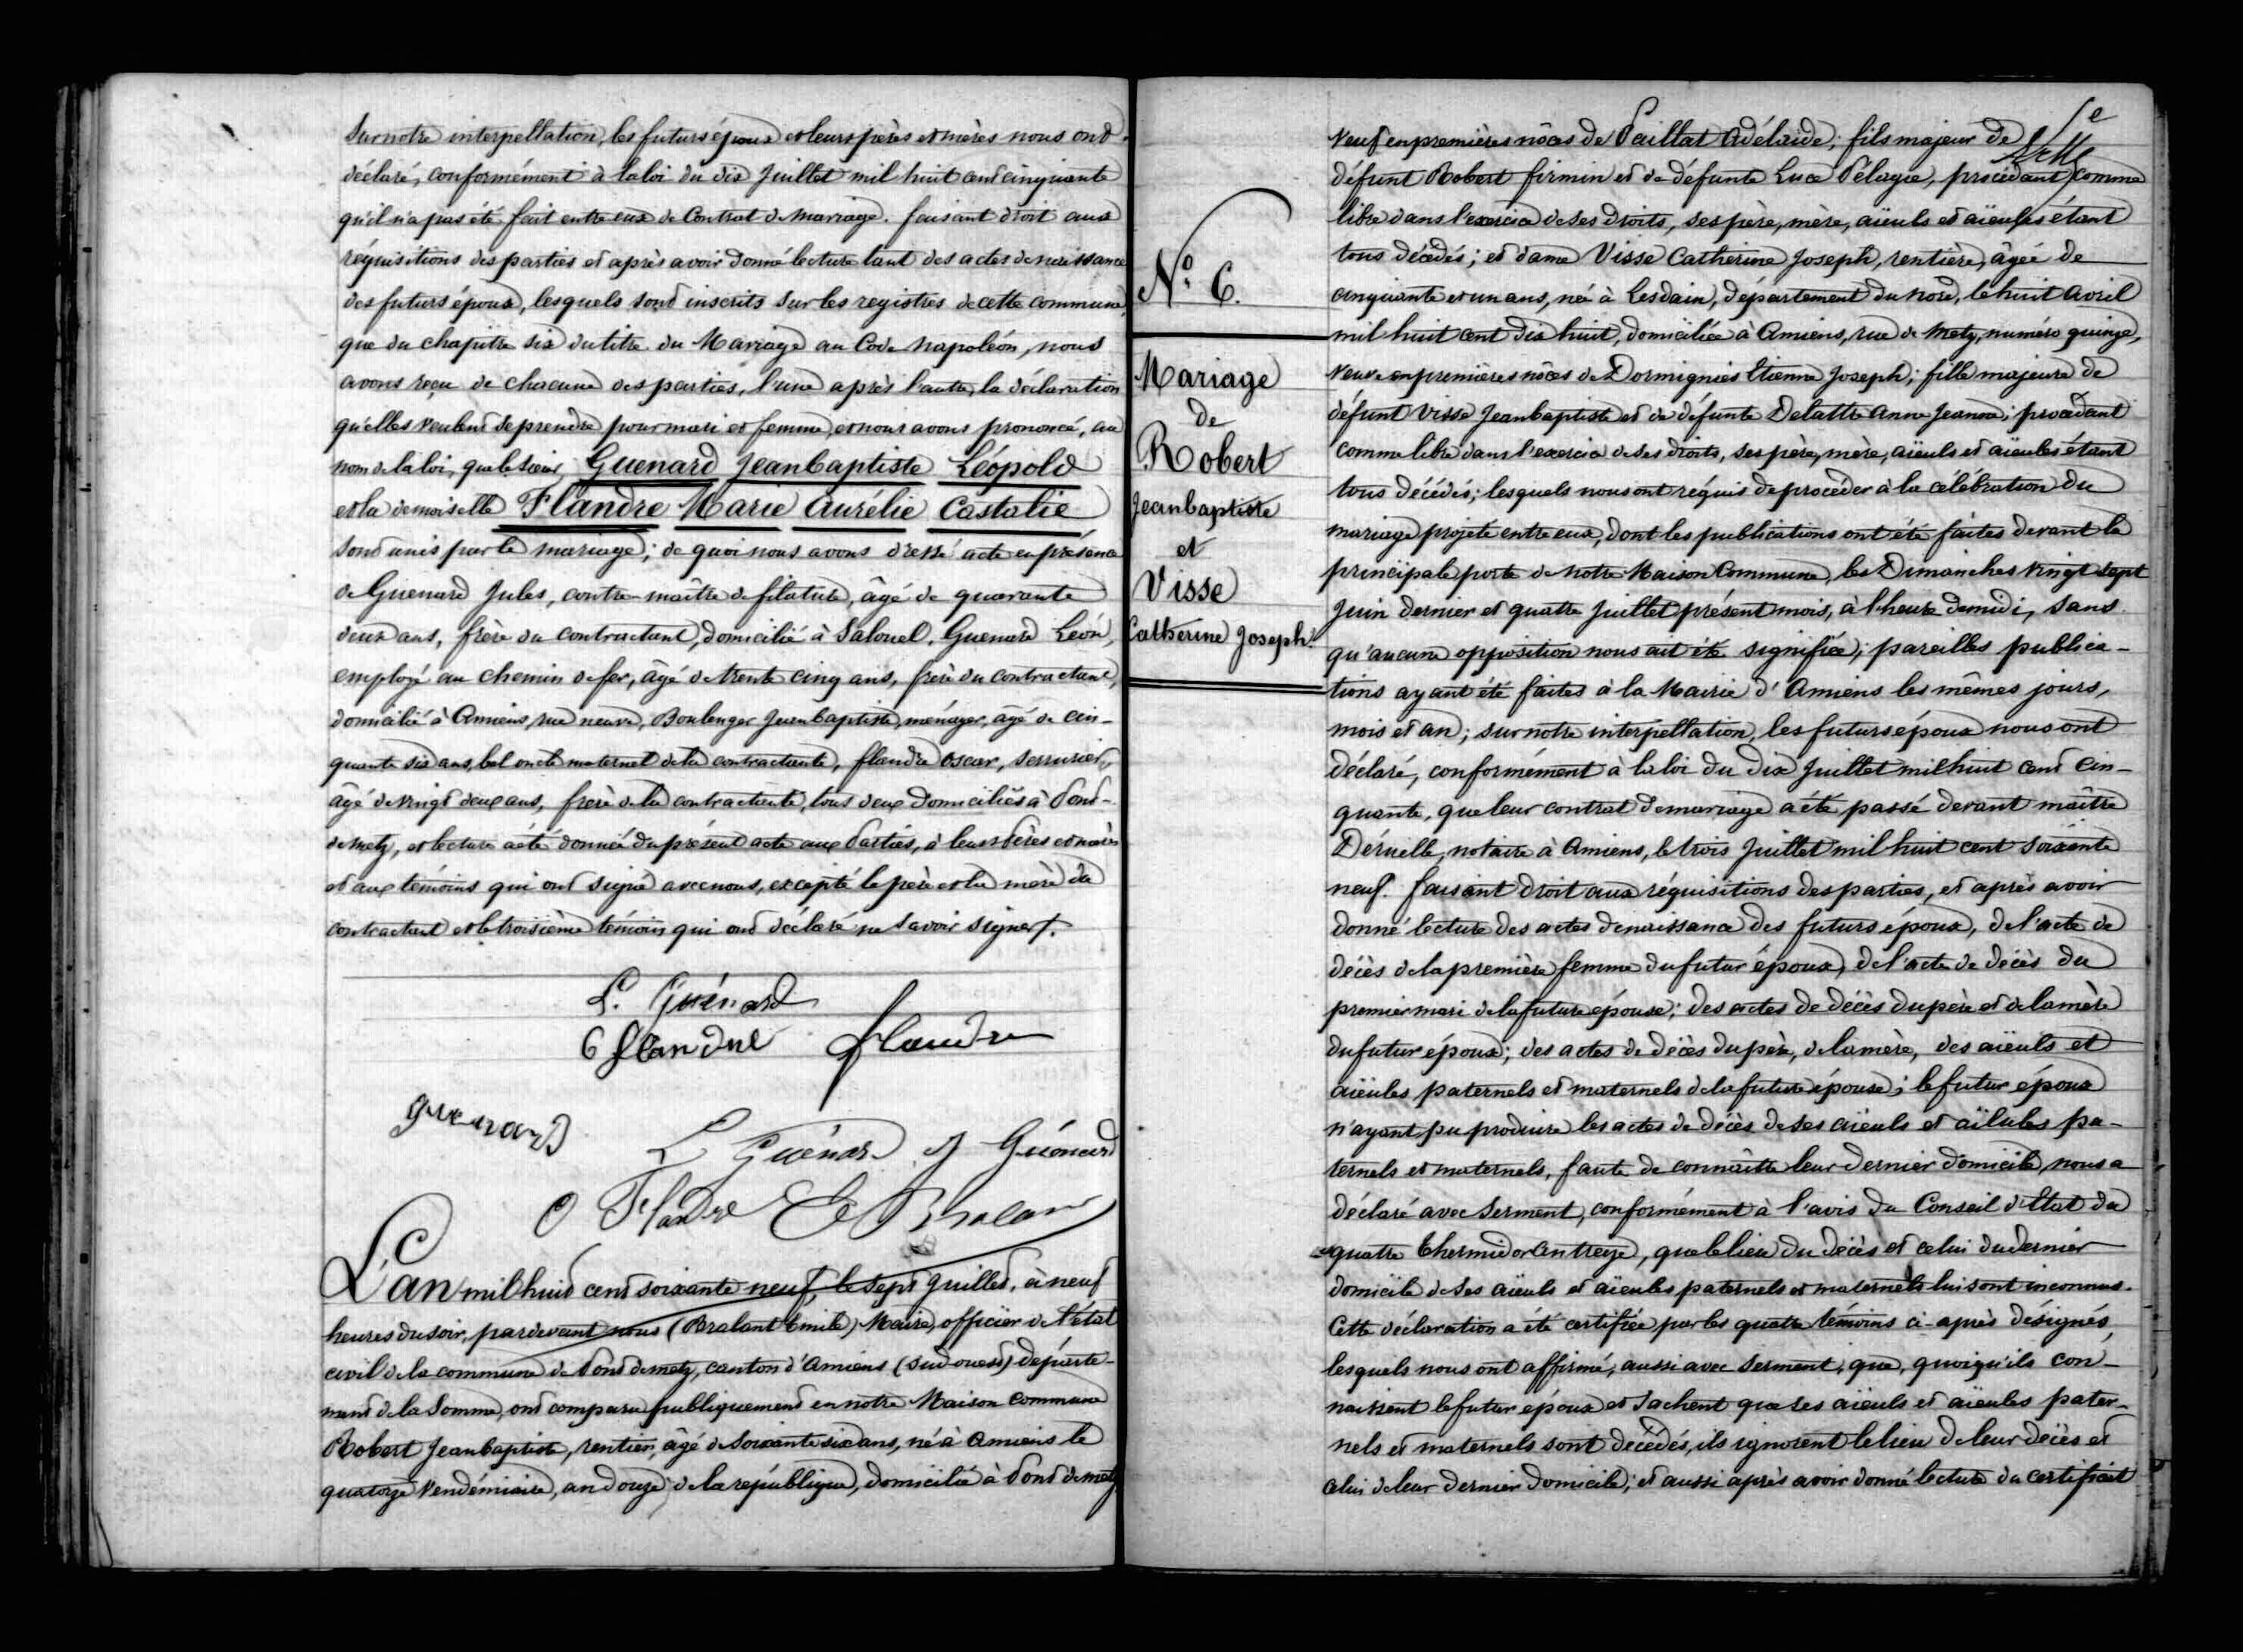 Sur notre interpellation, les futurs époux et leurs pères et mères nous ont
déclaré, conformément à la loi du dix Juillet mil huit cent cinquante
qu'il n'a pas été fait entre eux de Contrat de Mariage. faisant droit aux
réquisitions des parties et après avoir donné lecture tant des actes de naissance
des futurs époux, lesquels sont inscrits sur les registres de cette commune,
que du chapitre six du titre du Mariage au Code Napoléon, nous
avons reçu de chacune des parties, l'une après l'autre, la déclaration
qu'elles veulent se prendre pour mari et femme, et nous avons prononcé, au
nom de la loi, que le sieur Guenard Jeanbaptiste Léopold
et la demoiselle Flandre Marie Aurélie Castalie
sont unis par le mariage; de quoi nous avons dressé acte en présence
de Guenard Jules, contre-maître de filature, âgé de quarante
deux ans, frère du contractant, domicilié à Salouel, Guenard Léon,
employé au chemin de fer, âgé de trente cinq ans, frère du contractant,
domicilié à Amiens, rue neuve, Boulenger Jeanbaptiste, ménager, âgé de cin-
quante six ans, bel oncle maternel de la contractante, flandre Oscar, serrurier,
âgé de vingt deux ans, frère de la contractante, tous deux domiciliés à Pont-
de metz, et lecture a été donnée du présent acte aux Parties, à leurs Pères et mères
et aux témoins qui ont signé avec nous, excepté le père et la mère du
contractant et le troisième témoin qui ont déclaré ne savoir signer.
L. Guénard
C flandre flandre
guenard
L Guénard J Guénard
O Flandre E Bralant
L'an mil huit cent soixante neuf, le sept Juillet, à neuf
heures du soir, pardevant nous (Bralant Emile) Maire, officier de l'état
civil de la commune de Pont de metz, canton d'Amiens (sud ouest) départe-
ment de la Somme, ont comparu publiquement en notre Maison Commune
Robert Jeanbaptiste, rentier, âgé de soixante six ans, né à Amiens le
quatorze Vendémiaire, an douze de la république, domicilié à Pont de metz
N.° 6.
Mariage
de
Robert
Jeanbaptiste
et
Visse
Catherine Joseph.
Veuf en premières nôces de Paillat Adélaïde; fils majeur de
défunt Robert firmin et de défunte Luce Pélagie, procédant comme
libre dans l'exercice de ses droits, ses père, mère, aïeuls et aïeules étant
tous décédés; et dame Visse Catherine Joseph, rentière, âgée de
cinquante et un ans, née à Lesdain, département du nord, le huit avril
mil huit cent dix huit, domiciliée à Amiens, rue de Metz, numéro quinze,
Veuve en premières nôces de Dormignies Etienne Joseph; fille majeure de
défunt Visse Jeanbaptiste et de défunte Delattre Anne Jeanne; procédant
comme libre dans l'exercice de ses droits, ses père, mère, aïeuls et aïeules étant
tous décédés; lesquels nous ont réquis de procéder à la célébration du
mariage projeté entre eux, dont les publications ont été faites devant la
principale porte de notre Maison Commune, les Dimanches vingt sept
Juin dernier et quatre Juillet présent mois, à l'heure de midi, sans
qu'aucune opposition nous ait été signifiée; pareilles publica-
tions ayant été faites à la Mairie d'Amiens les mêmes jours,
mois et an; sur notre interpellation, les futurs époux nous ont
déclaré, conformément à la loi du dix Juillet mil huit cent cin-
quante, que leur contrat de mariage a été passé devant maître
Déruelle, notaire à Amiens, le trois Juillet mil huit cent soixante
neuf. faisant droit aux réquisitions des parties, et après avoir
donné lecture des actes de naissance des futurs époux, de l'acte de
décès de la première femme du futur époux, de l'acte de décès du
premier mari de la future épouse; des actes de décès du père et de la mère
du futur époux; des actes de décès du père, de la mère, des aïeuls et
aïeules paternels et maternels de la future épouse; le futur époux
n'ayant pu produire les actes de décès de ses aïeuls et aïeules pa-
ternels et maternels, faute de connaître leur dernier domicile, nous a
déclaré avec serment, conformément à l'avis du Conseil d'Etat du
quatre thermidor an treize, que le lieu du décès et celui du dernier
domicile de ses aïeuls et aïeules paternels et maternels lui sont inconnus.
Cette déclaration a été certifiée par les quatre témoins ci-après désignés,
lesquels nous ont affirmé, aussi avec serment, que, quoiqu'ils con-
naissent le futur époux et sachent que ses aïeuls et aïeules pater-
nels et maternels sont décédés, ils ignorent le lieu de leur décès et
celui de leur dernier domicile; et aussi après avoir donné lecture du certificat